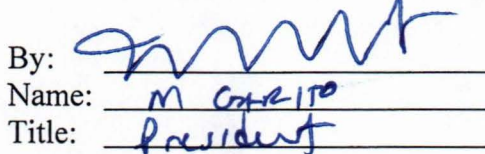 By:
Name: M GARITO
Title: President